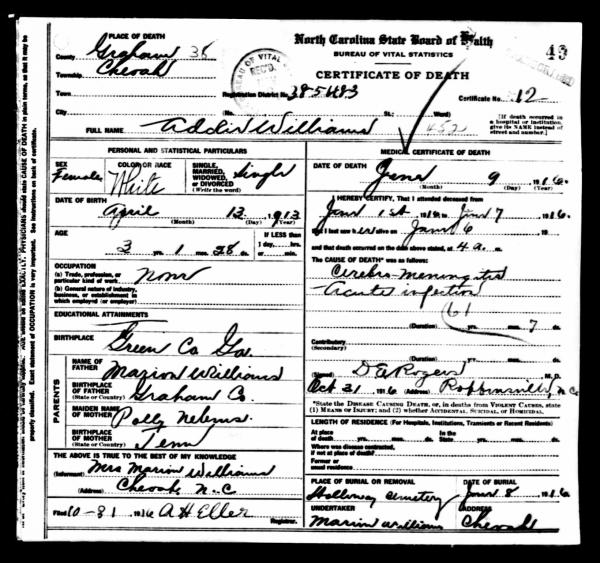 North Carolina State Board of Health
BUREAU OF VITAL STATISTICS
CERTIFICATE OF DEATH
43
PLACE OF DEATH
County Graham 38
Township Cheoah
Town
City
BUREAU OF VITAL
REC'D.
Registration District No. 38-5483
Certificate No. 12
(No. St.; Ward)
452
[If death occurred in a hospital or institution, give its NAME instead of street and number.]
FULL NAME Addie Williams
PERSONAL AND STATISTICAL PARTICULARS
SEX Female
COLOR OR RACE White
SINGLE, MARRIED, WIDOWED, OR DIVORCED (Write the word) Single
DATE OF BIRTH
April 12 1913
(Month) (Day) (Year)
AGE
3 yrs. 1 mos. 28 ds.
If LESS than 1 day, hrs. or min.
OCCUPATION
(a) Trade, profession, or particular kind of work None
(b) General nature of industry, business, or establishment in which employed (or employer)
EDUCATIONAL ATTAINMENTS
BIRTHPLACE Green Co Ga.
PARENTS
NAME OF FATHER Marion Williams
BIRTHPLACE OF FATHER (State or Country) Graham Co.
MAIDEN NAME OF MOTHER Polly
BIRTHPLACE OF MOTHER (State or Country) Tenn
THE ABOVE IS TRUE TO THE BEST OF MY KNOWLEDGE
(Informant) Mrs Marion Williams
(Address) Cheoah, N.C
Filed 10-31 1916 A H Eller
Registrar.
MEDICAL CERTIFICATE OF DEATH
DATE OF DEATH June 9 1916.
(Month) (Day) (Year)
I HEREBY CERTIFY, That I attended deceased
from June 1st 1916 to June 7 1916.
that I last saw her alive on June 6 19
and that death occurred on the date above stated, at 4 a. m.
The CAUSE OF DEATH* was as follows:
Cerebro-Meningitis
Acute infection
61
(Duration) yrs. mos. 7 ds.
Contributory
(Secondary)
(Duration) yrs. mos. ds.
(Signed) Rogers M. D.
Oct 31 1916 (Address) Robbinsville, N.C
*State the DISEASE CAUSING DEATH, or, in deaths from VIOLENT CAUSES, state (1) MEANS OF INJURY; and (2) whether ACCIDENTAL, SUICIDAL, OR HOMICIDAL.
LENGTH OF RESIDENCE (For Hospitals, Institutions, Transients or Recent Residents)
At place of death yrs. mos. ds. In the State yrs. mos. ds.
Where was disease contracted, if not at place of death?
Former or usual residence
PLACE OF BURIAL OR REMOVAL Holloway Cemetery
DATE OF BURIAL June 8 1916
UNDERTAKER Marion Williams
ADDRESS Cheoah